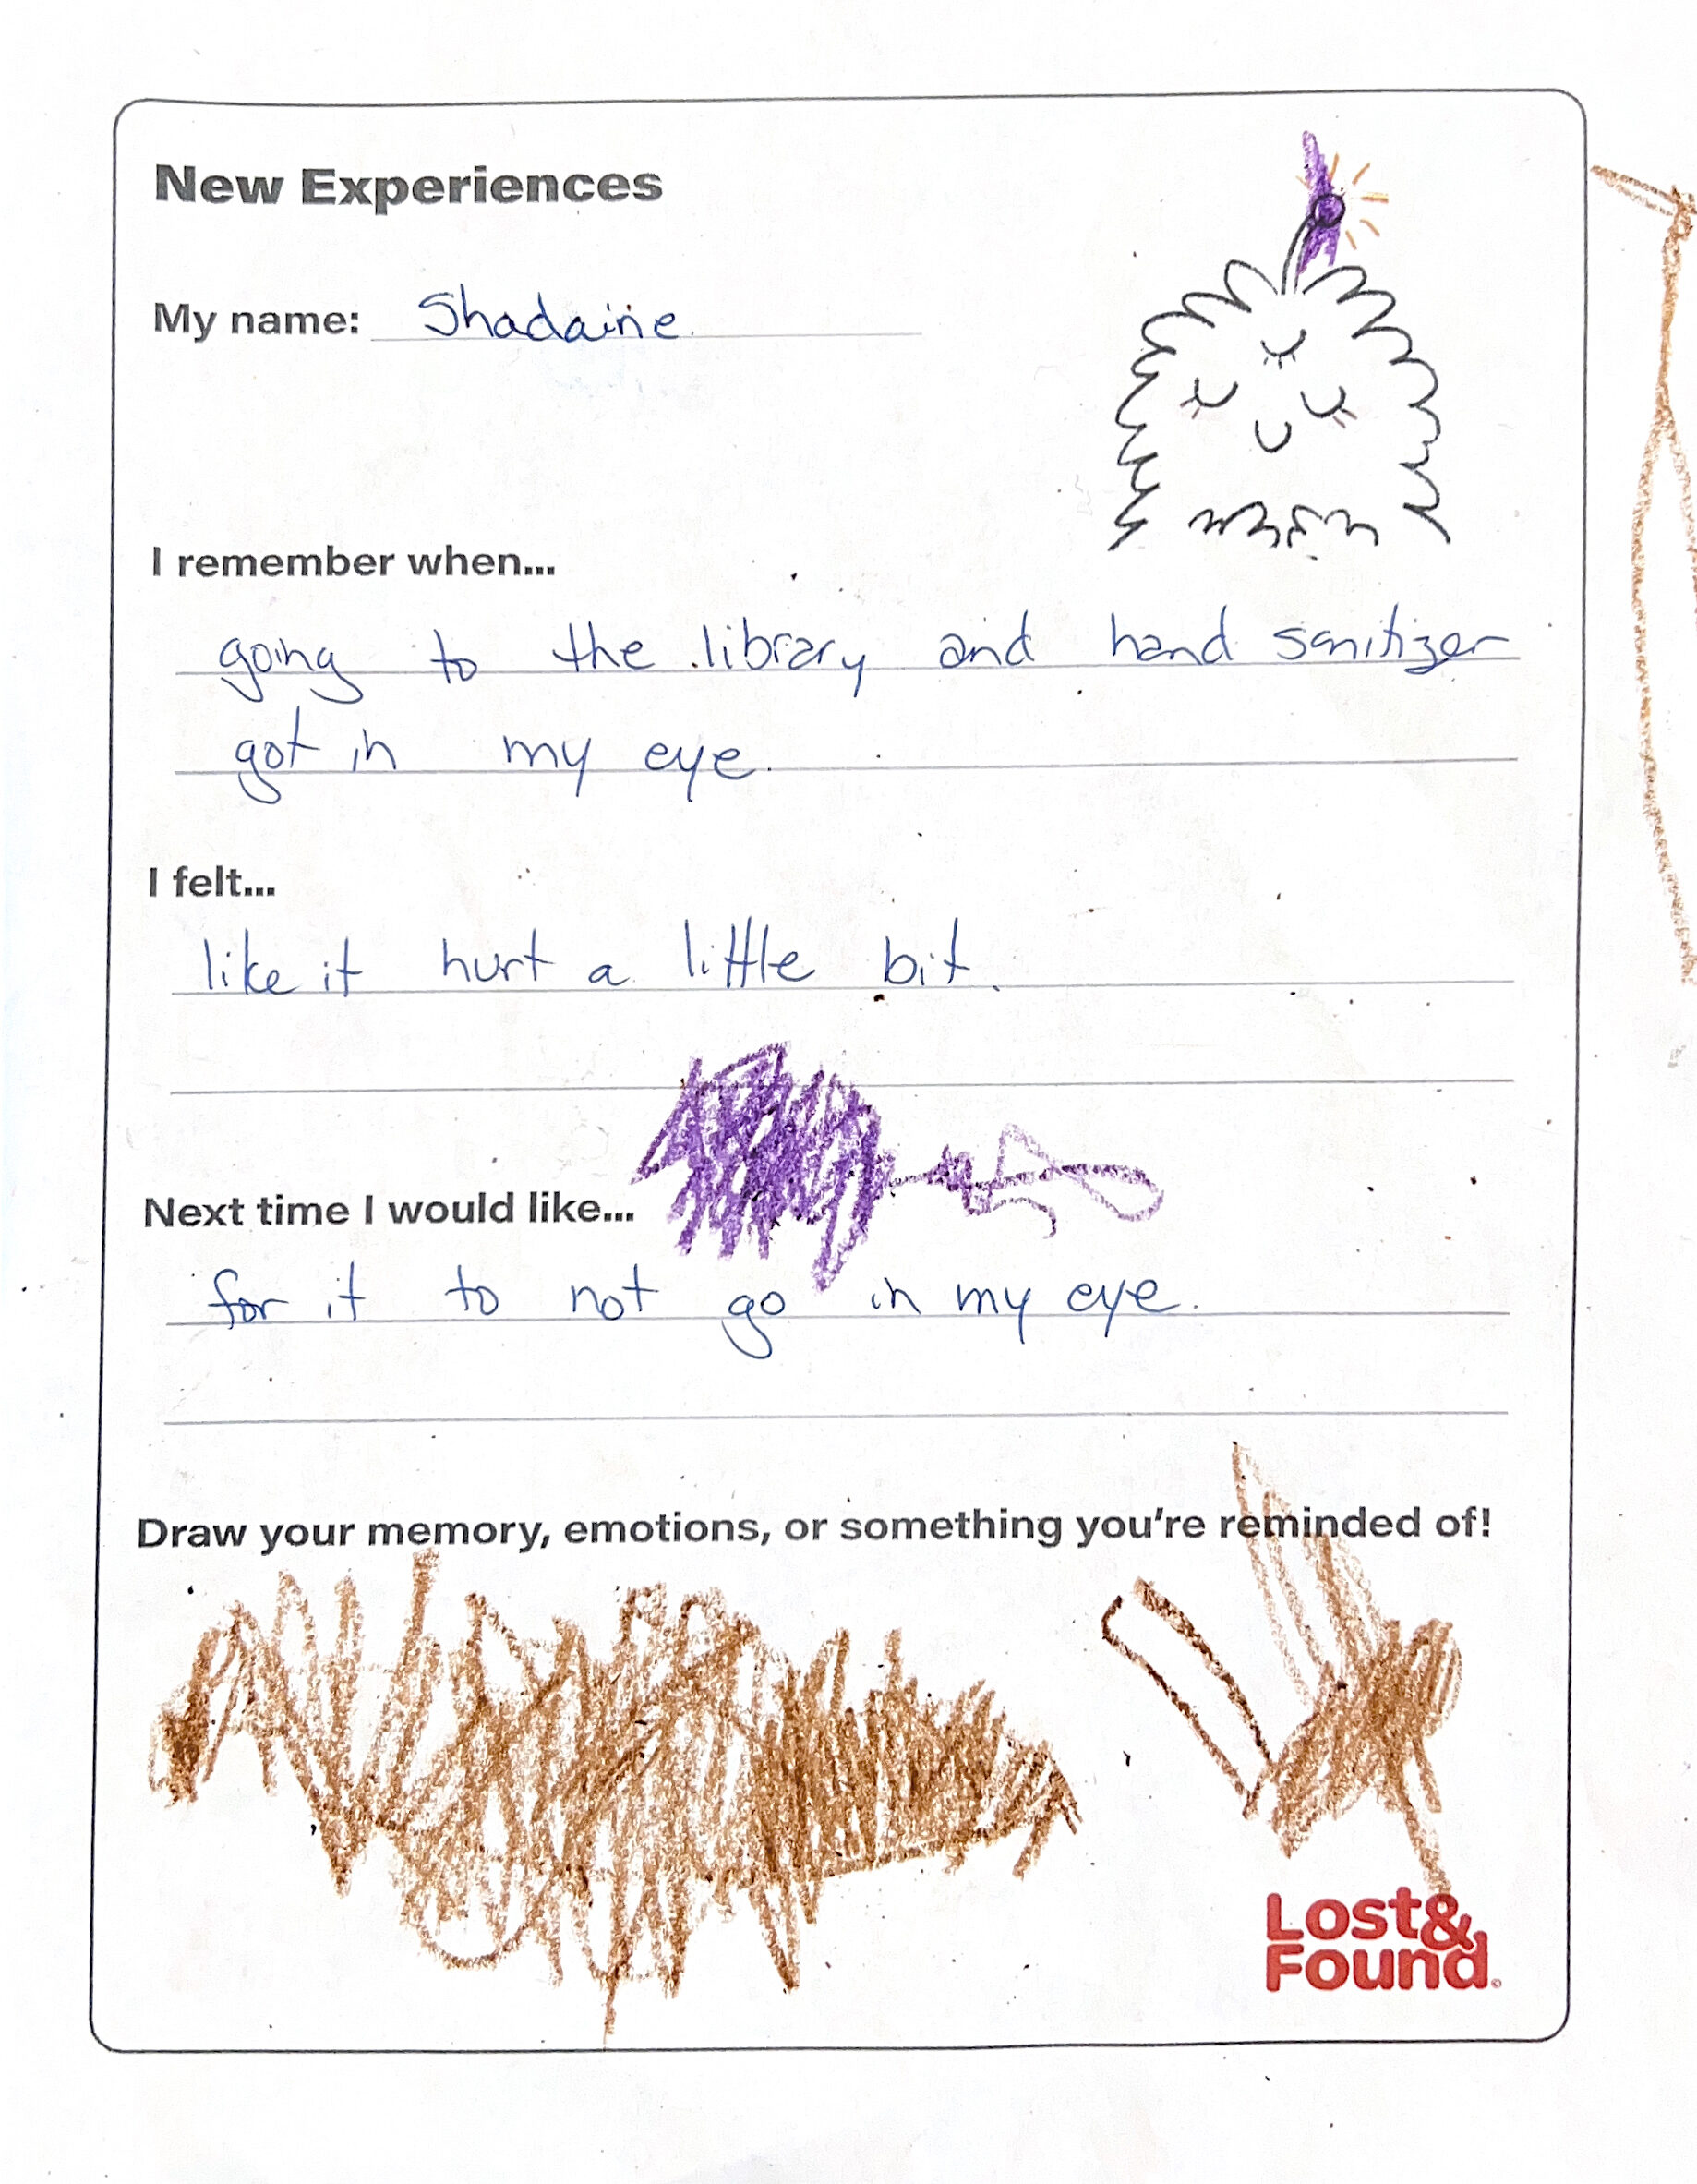 New Experiences
My name: Shadaine
I remember when...
going to the library and hand sanitizer
got in my eye.
I felt...
like it hurt a little bit.
Next time I would like...
for it to not go in my eye.
Draw your memory, emotions, or something you're reminded of!
Lost&
Found